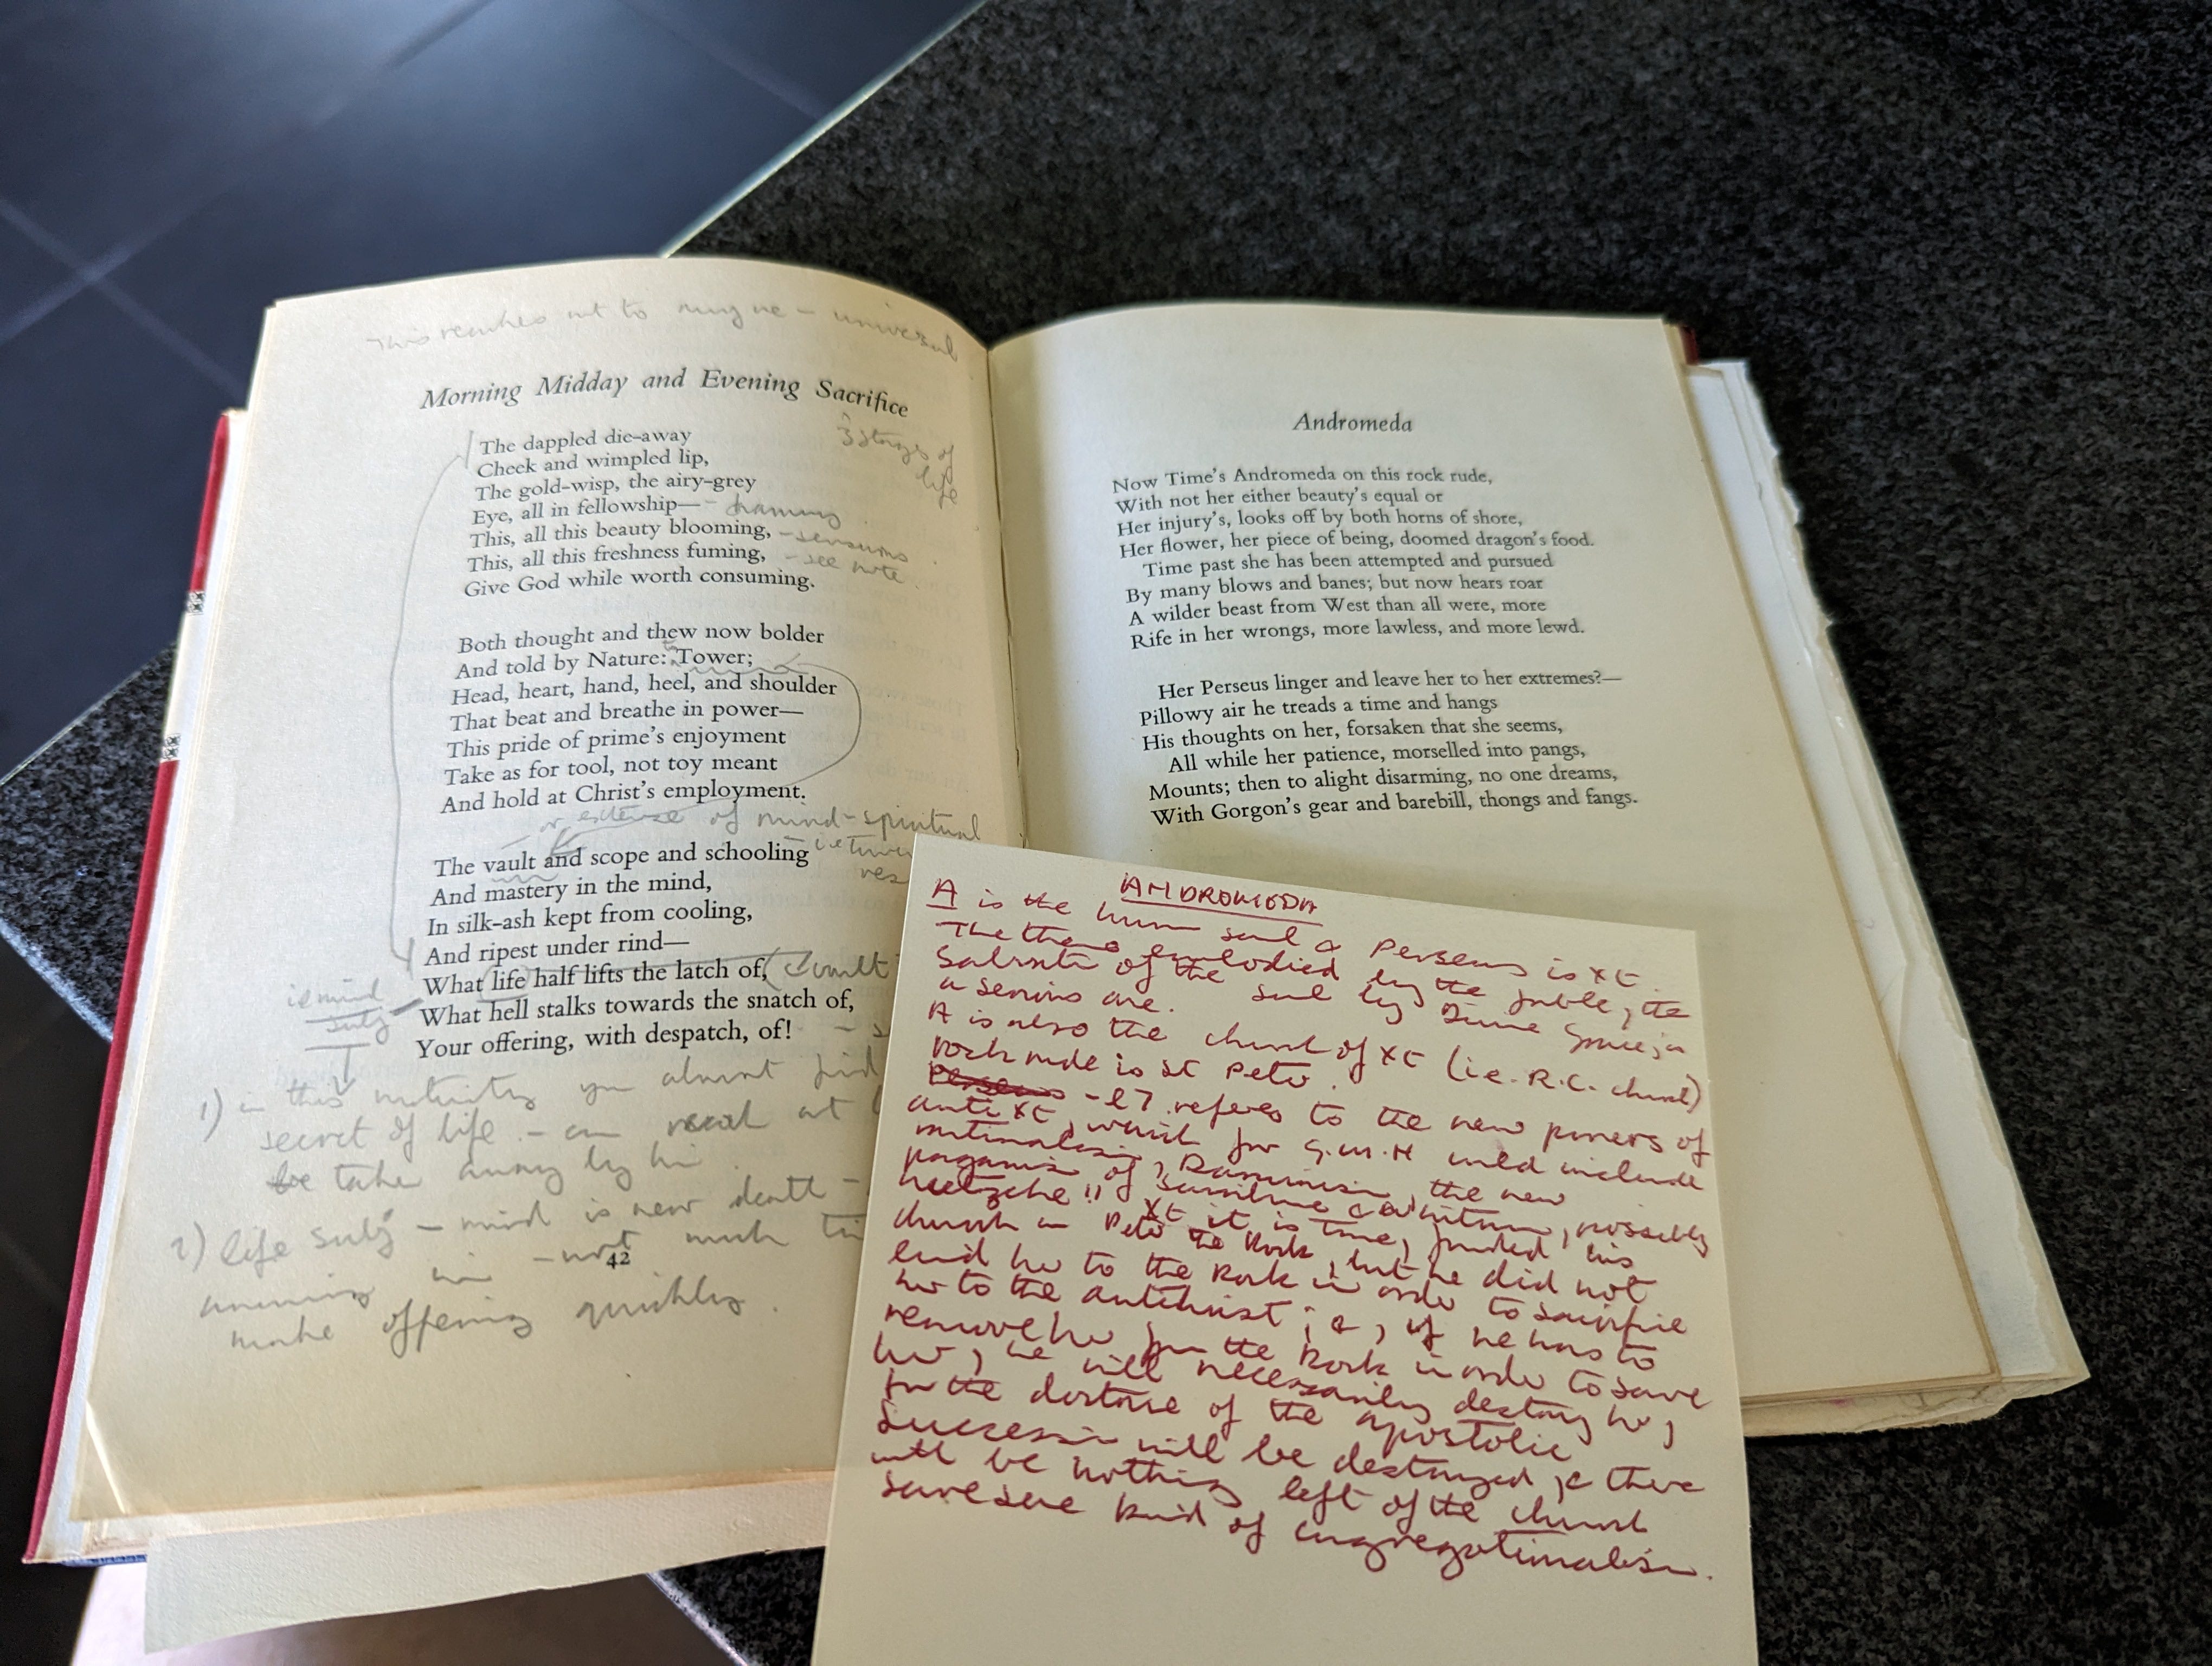 This reaches out to anyone – universal
Morning Midday and Evening Sacrifice
3 stages of
life
The dappled die-away
Cheek and wimpled lip,
The gold-wisp, the airy-grey
Eye, all in fellowship—
This, all this beauty blooming, – sensuous
This, all this freshness fuming, – see note
Give God while worth consuming.
Both thought and thew now bolder
And told by Nature: Tower;
Head, heart, hand, heel, and shoulder
That beat and breathe in power—
This pride of prime's enjoyment
Take as for tool, not toy meant
And hold at Christ's employment.
of mind – spiritual
The vault and scope and schooling
And mastery in the mind,
In silk-ash kept from cooling,
And ripest under rind—
What life half lifts the latch of, vault
What hell stalks towards the snatch of,
Your offering, with despatch, of!
is mind
subj
1) in this maturity you almost find
secret of life – can at
be take away by
2) life subj – mind is near death –
in – not much
make offering quickly.
42
Andromeda
Now Time's Andromeda on this rock rude,
With not her either beauty's equal or
Her injury's, looks off by both horns of shore,
Her flower, her piece of being, doomed dragon's food.
Time past she has been attempted and pursued
By many blows and banes; but now hears roar
A wilder beast from West than all were, more
Rife in her wrongs, more lawless, and more lewd.
Her Perseus linger and leave her to her extremes?—
Pillowy air he treads a time and hangs
His thoughts on her, forsaken that she seems,
All while her patience, morselled into pangs,
Mounts; then to alight disarming, no one dreams,
With Gorgon's gear and barebill, thongs and fangs.
ANDROMEDA
A is the human soul & Perseus is Xt.
The theme embodied by the fable, the
Salvation of the soul by Divine Grace, is
a serious one.
A is also the church of Xt (i.e. R.C. church)
rock rude is St Peter.
– l 7 refers to the new powers of
anti Xt, which for G.M.H would include
rationalism, Darwinism, the new
paganism of Swinburne & Whitman, possibly
Nietzche!! Xt it is true, founded his
church on Peter the Rock, but he did not
bind her to the Rock in order to sacrifice
her to the antichrist; &, if he has to
remove her from the Rock in order to save
her, he will necessarily destroy her,
for the doctrine of the apostolic
succession will be destroyed, & there
will be nothing left of the church
save some kind of congregationalism.